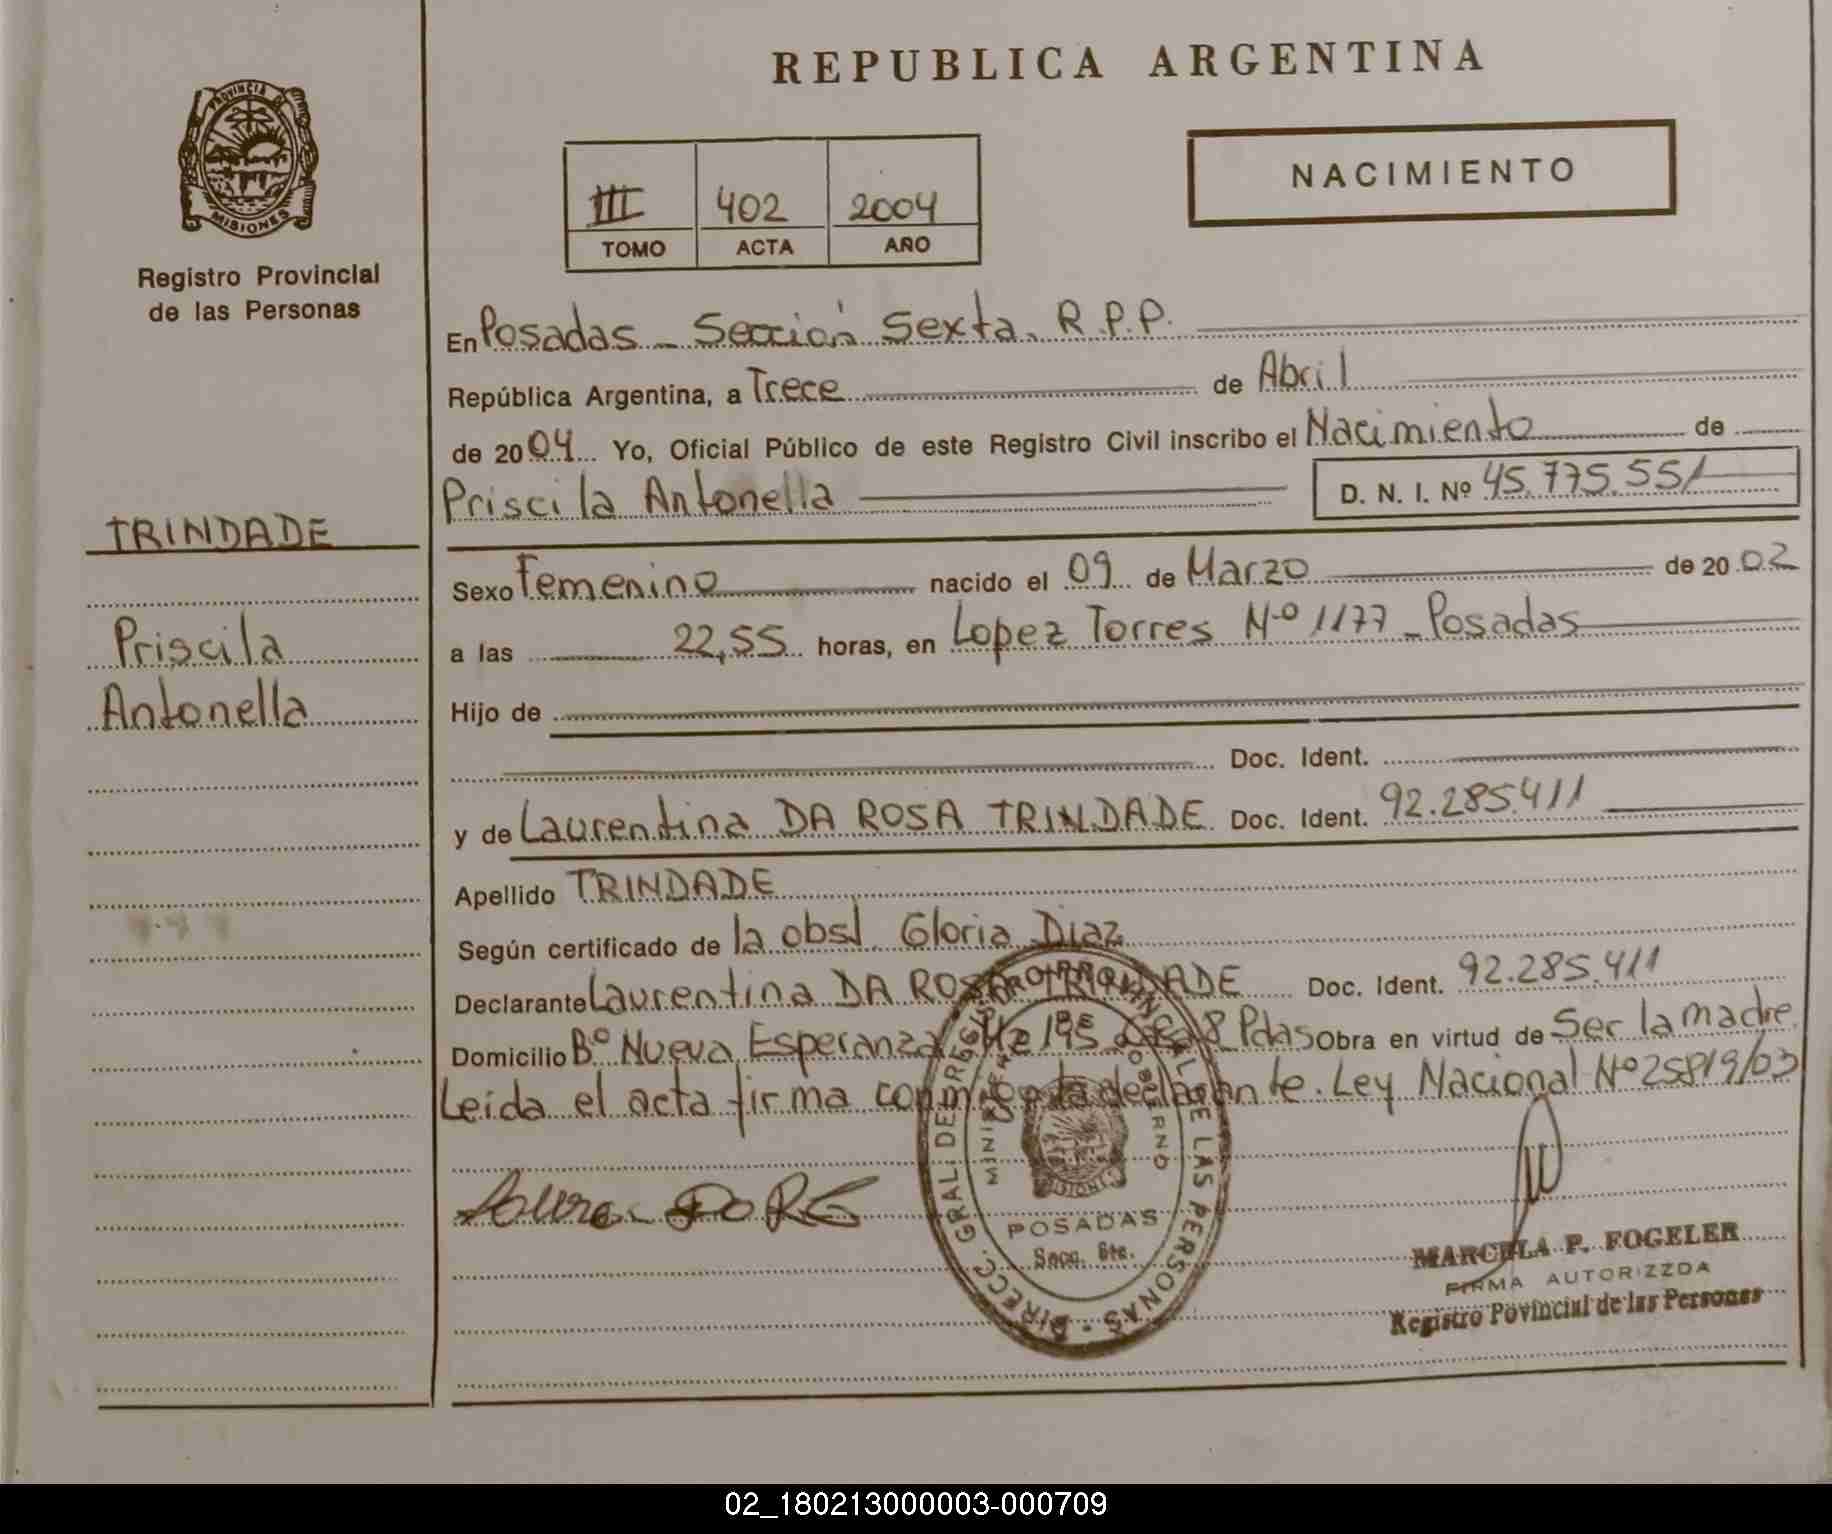 REPUBLICA ARGENTINA
PROVINCIA DE
MISIONES
Registro Provincial
de las Personas
NACIMIENTO
III 402 2004
TOMO ACTA AÑO
En Posadas - Sección Sexta. R.P.P.
República Argentina, a Trece de Abril
de 2004 Yo, Oficial Público de este Registro Civil inscribo el Nacimiento de
Priscila Antonella D. N. I. Nº 45.775.551
TRINDADE
Priscila
Antonella
Sexo Femenino nacido el 09 de Marzo de 2002
a las 22,55 horas, en Lopez Torres Nº 1177 - Posadas
Hijo de
Doc. Ident.
y de Laurentina DA ROSA TRINDADE Doc. Ident. 92.285.411
Apellido TRINDADE
Según certificado de la obst. Gloria Diaz
Declarante Laurentina DA ROSA TRINDADE Doc. Ident. 92.285.411
Domicilio Bº Nueva Esperanza Mz 195 8 Pdas Obra en virtud de Ser la madre
Leida el acta firma conmigo la declarante. Ley Nacional Nº 25819/03
DIRECC. GRAL. DE REGISTRO PROVINCIAL DE LAS PERSONAS
MINISTERIO DE GOBIERNO
MISIONES
POSADAS
Secc. 6ta.
MARCELA P. FOGELER
FIRMA AUTORIZZDA
Registro Povincial de las Personas
02_180213000003-000709